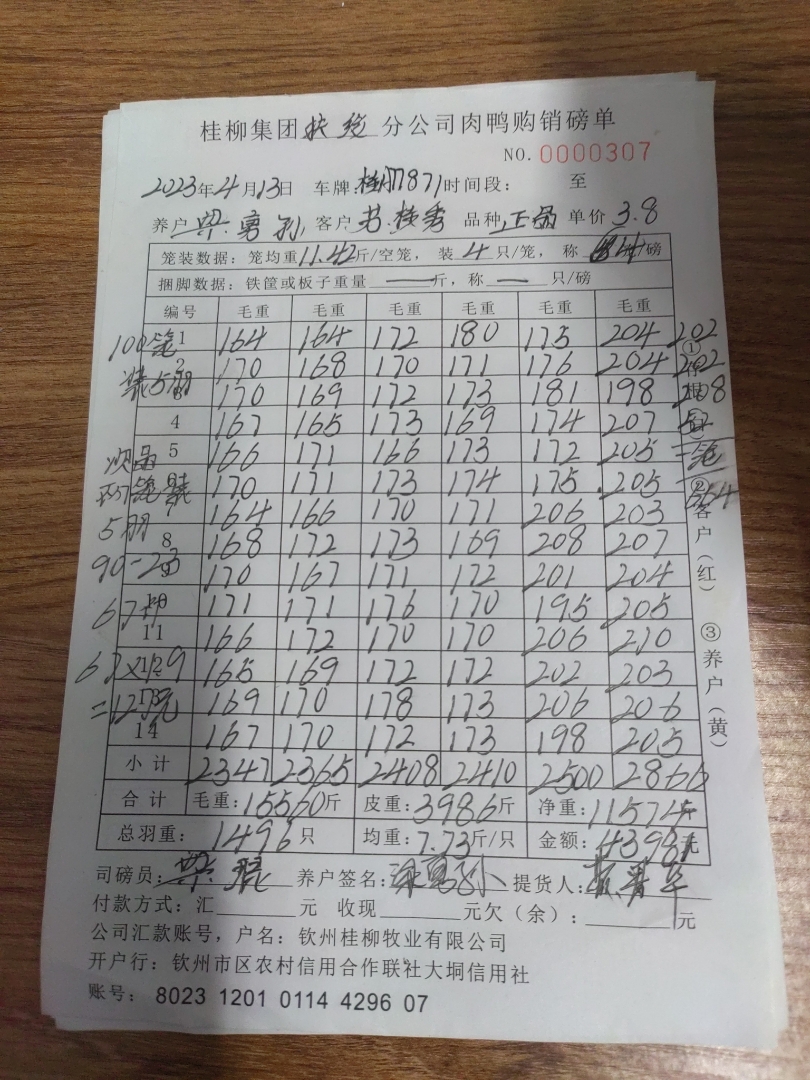 桂柳集团扶绥分公司肉鸭购销磅单
NO. 0000307
2023年4月13日 车牌:桂 7871 时间段: 至
养户 勇孙 客户 苏桂秀 品种 正品 单价 3.8
笼装数据:笼均重11.42斤/空笼,装4只/笼,称 /磅
捆脚数据:铁筐或板子重量 — 斤,称 — 只/磅
编号 毛重 毛重 毛重 毛重 毛重 毛重
1 164 164 172 180 175 204 202
2 170 168 170 171 176 204 202
3 170 169 172 173 181 198 208
4 167 165 173 169 174 207 52
5 166 171 166 173 172 205 笼
6 170 171 173 174 175 205 664
164 166 170 171 206 203
8 168 172 173 169 208 207
9 170 167 171 172 201 204
10 171 171 176 170 195 205
11 166 172 170 170 206 210
12 165 169 172 172 202 203
13 169 170 178 173 206 206
14 167 170 172 173 198 205
小计 2347 2365 2408 2410 2500 2866
合计 毛重:15560斤 皮重:3986斤 净重:11574斤
总羽重:1496只 均重:7.73斤/只 金额:43981元
100笼
装5羽
次品
5羽
90-23
=
①
②客户(红)
③养户(黄)
司磅员: 养户签名: 勇孙 提货人:
付款方式:汇 元 收现 元欠(余): 元
公司汇款账号,户名:钦州桂柳牧业有限公司
开户行:钦州市区农村信用合作联社大垌信用社
账号:8023 1201 0114 4296 07